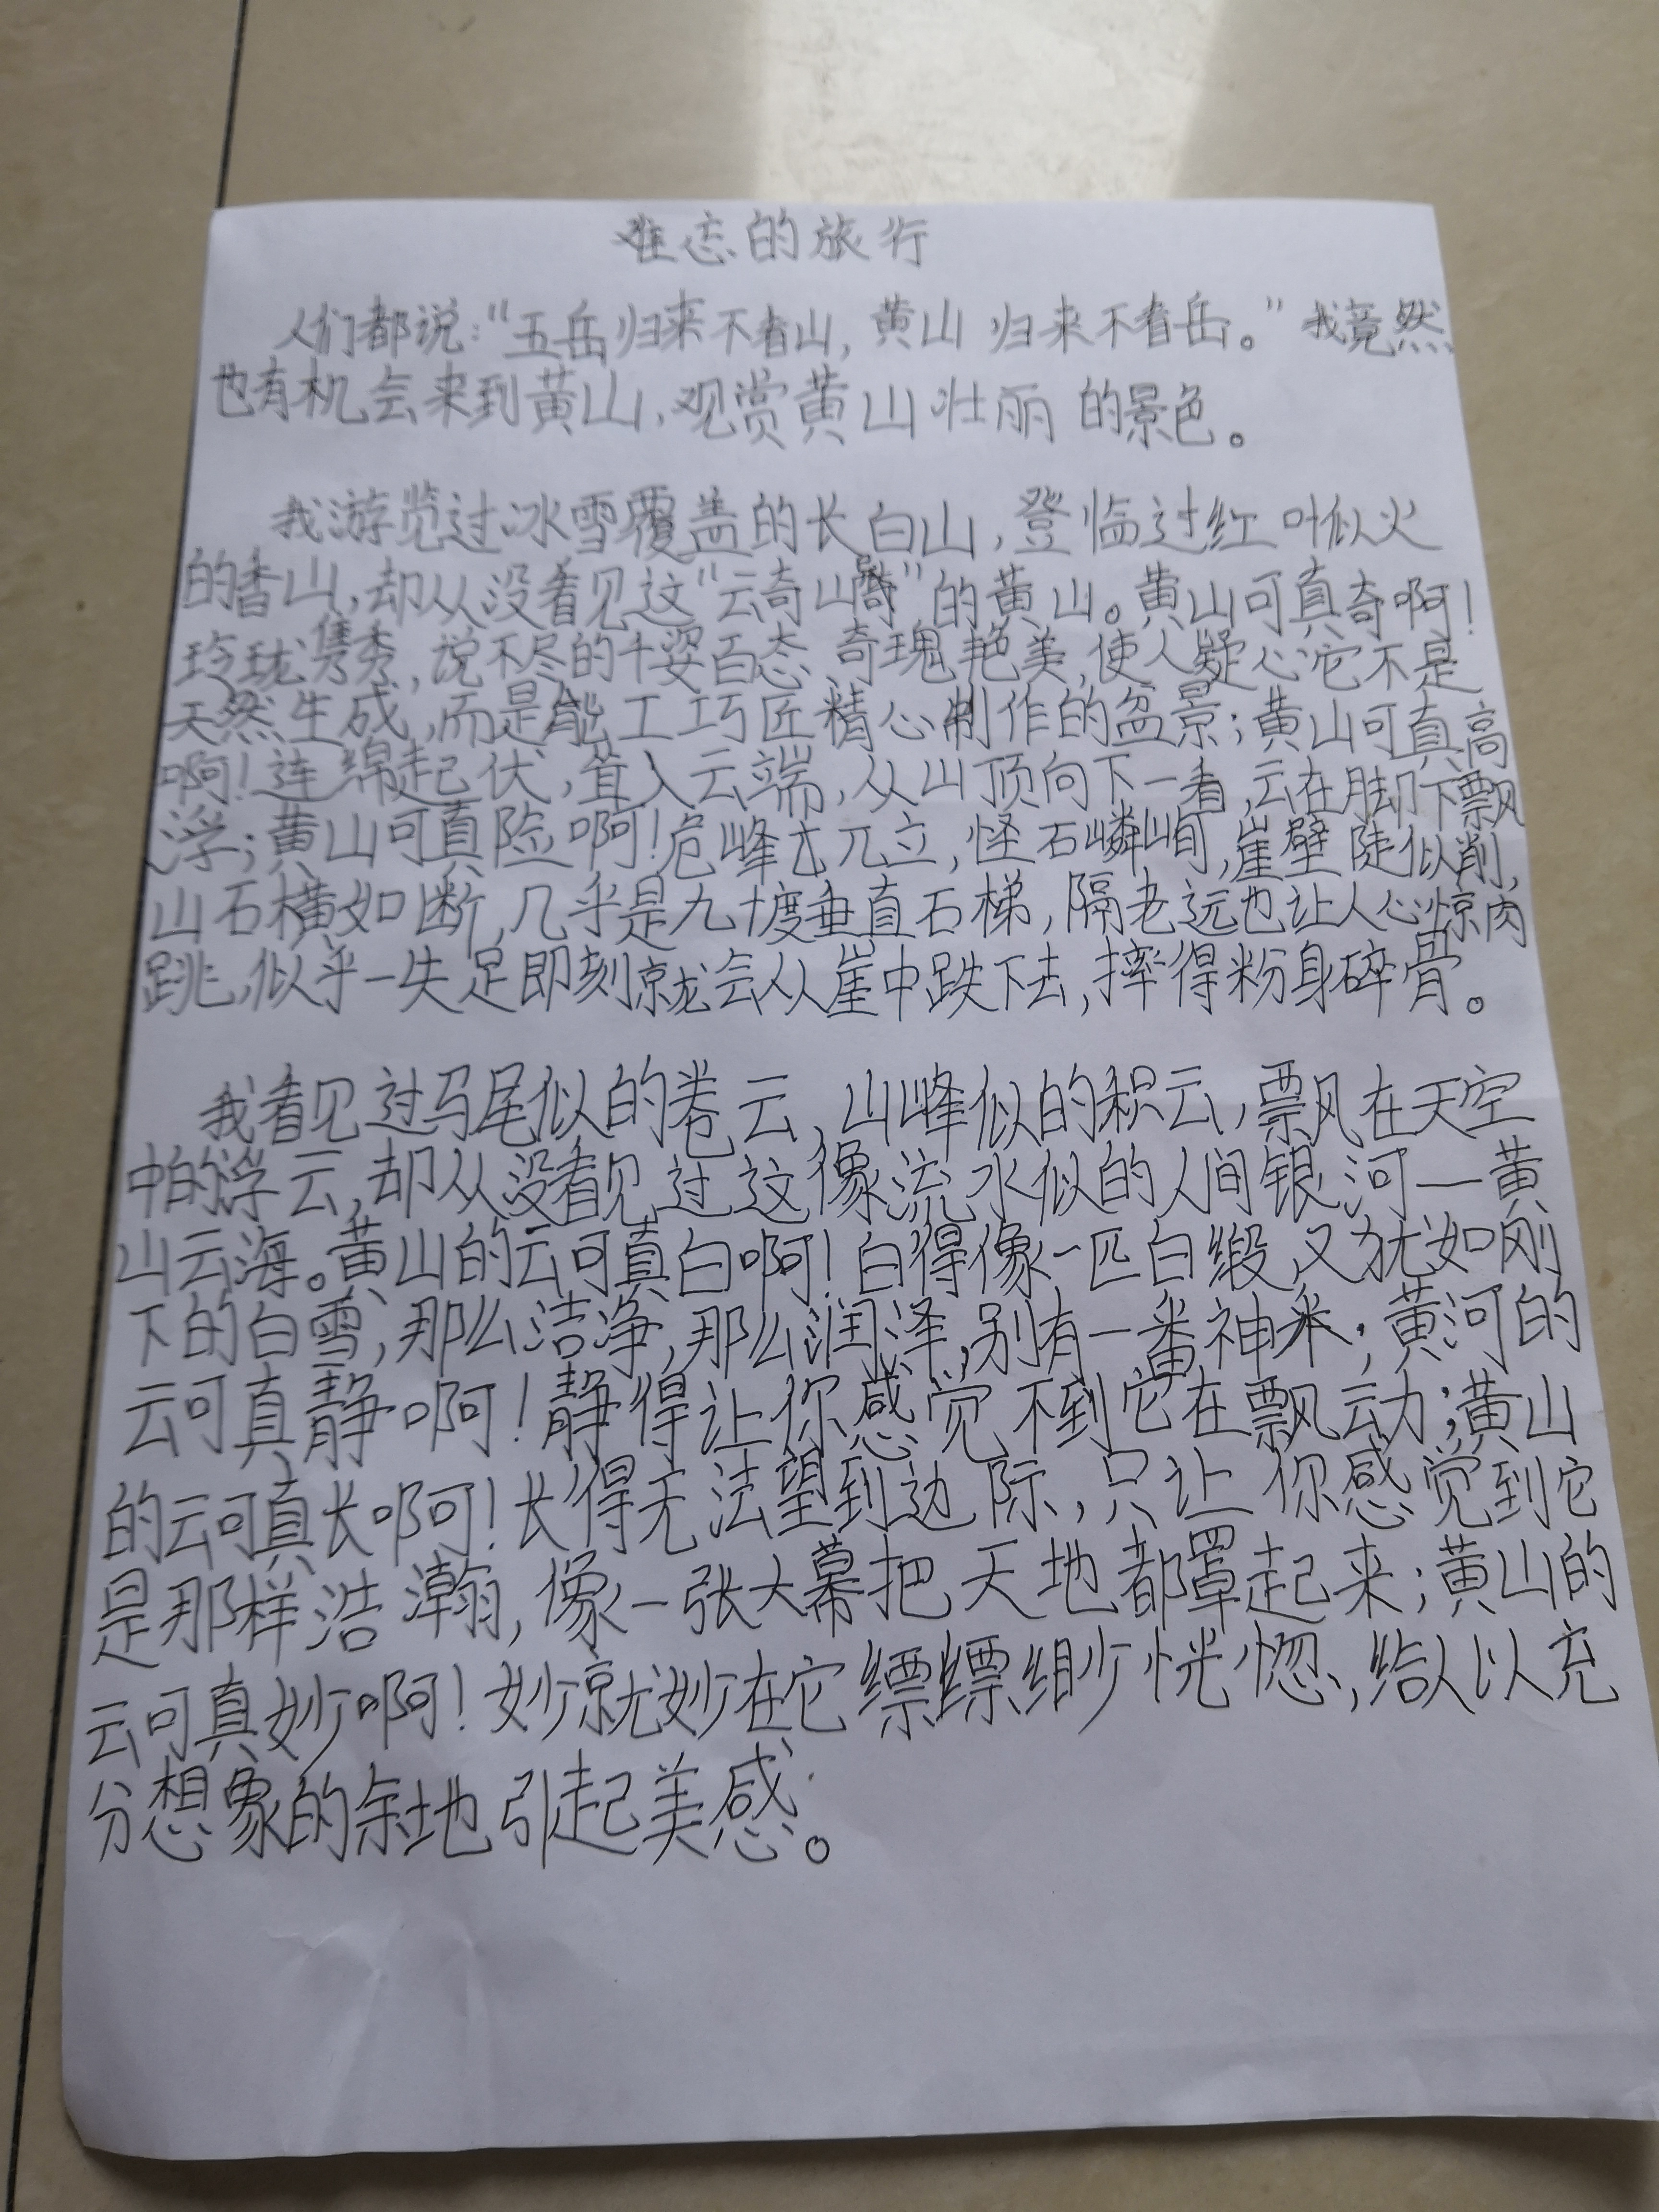 难忘的旅行
人们都说:“五岳归来不看山,黄山归来不看岳。”我竟然
也有机会来到黄山,观赏黄山壮丽的景色。
我游览过冰雪覆盖的长白山,登临过红叶似火
的香山,却从没看见这“云奇山奇”的黄山。黄山可真奇啊!
玲珑隽秀,说不尽的千姿百态,奇瑰艳美,使人疑心它不是
天然生成,而是能工巧匠精心制作的盆景;黄山可真高
啊!连绵起伏,耸入云端,从山顶向下一看,云在脚下飘
浮;黄山可真险啊!危峰兀立,怪石嶙峋,崖壁陡似削,
山石横如断,几乎是九十度垂直石梯,隔老远也让人心惊肉
跳,似乎一失足即刻就会从崖中跌下去,摔得粉身碎骨。
我看见过马尾似的卷云,山峰似的积云,飘在天空
中的浮云,却从没看见过这像流水似的人间银河—黄
山云海。黄山的云可真白啊!白得像一匹白缎又犹如刚
下的白雪,那么洁净,那么润泽,别有一番神采;黄河的
云可真静啊!静得让你感觉不到它在飘动;黄山
的云可真长啊!长得无法望到边际,只让你感觉到它
是那样浩瀚,像一张大幕把天地都罩起来;黄山的
云可真妙啊!妙就妙在它缥缥缈恍惚,给人以充
分想象的余地引起美感。